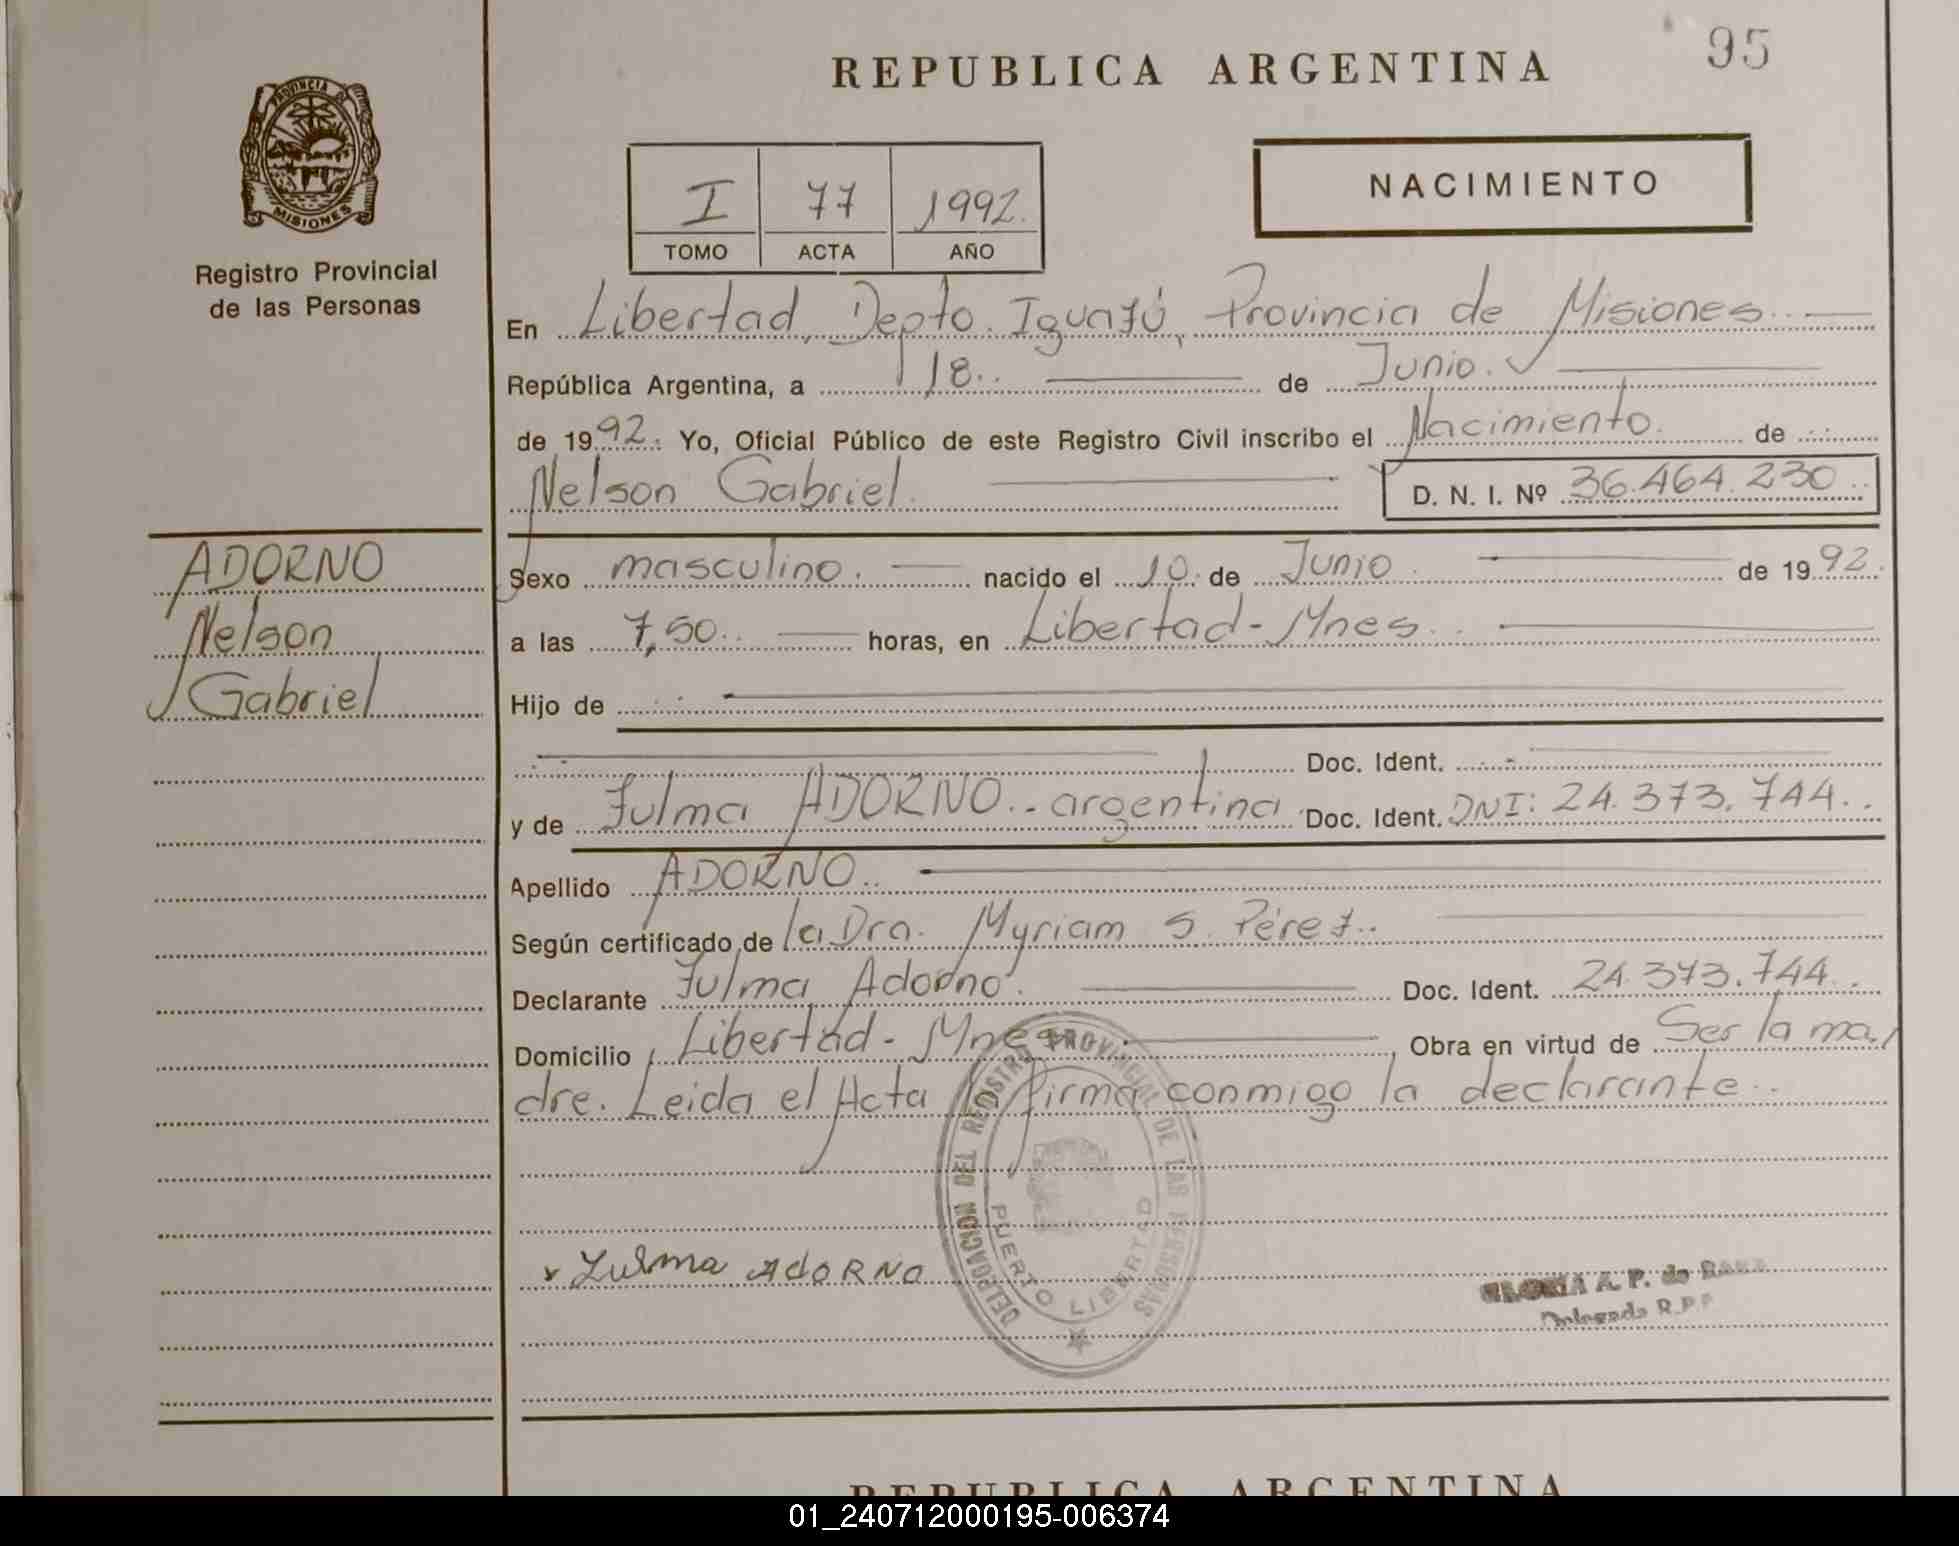 95
REPUBLICA ARGENTINA
PROVINCIA DE
MISIONES
Registro Provincial
de las Personas
NACIMIENTO
I 77 1992.
TOMO ACTA AÑO
En Libertad, Depto. Iguazú, Provincia de Misiones.
República Argentina, a 18. de Junio.
de 1992. Yo, Oficial Público de este Registro Civil inscribo el Nacimiento. de
Nelson Gabriel. D. N. I. Nº 36.464.230
ADORNO
Nelson
Gabriel
Sexo masculino. nacido el 10. de Junio. de 1992.
a las 7,50. horas, en Libertad-Mnes.
Hijo de
Doc. Ident.
y de Zulma ADORNO.. argentina Doc. Ident. DNI: 24.373.744.
Apellido ADORNO.
Según certificado de la Dra. Myriam S. Pérez.
Declarante Zulma Adorno. Doc. Ident. 24.373.744.
Domicilio Libertad-Mnes. Obra en virtud de Ser la ma,
dre. Leida el Acta la firma conmigo la declarante.
DELEGACION DEL REGISTRO PROVINCIAL DE LAS PERSONAS
PUERTO LIBERTAD
Zulma AdORNO
GLORIA A. P. de
Delegada R.P.P
REPUBLICA ARGENTINA
01_240712000195-006374